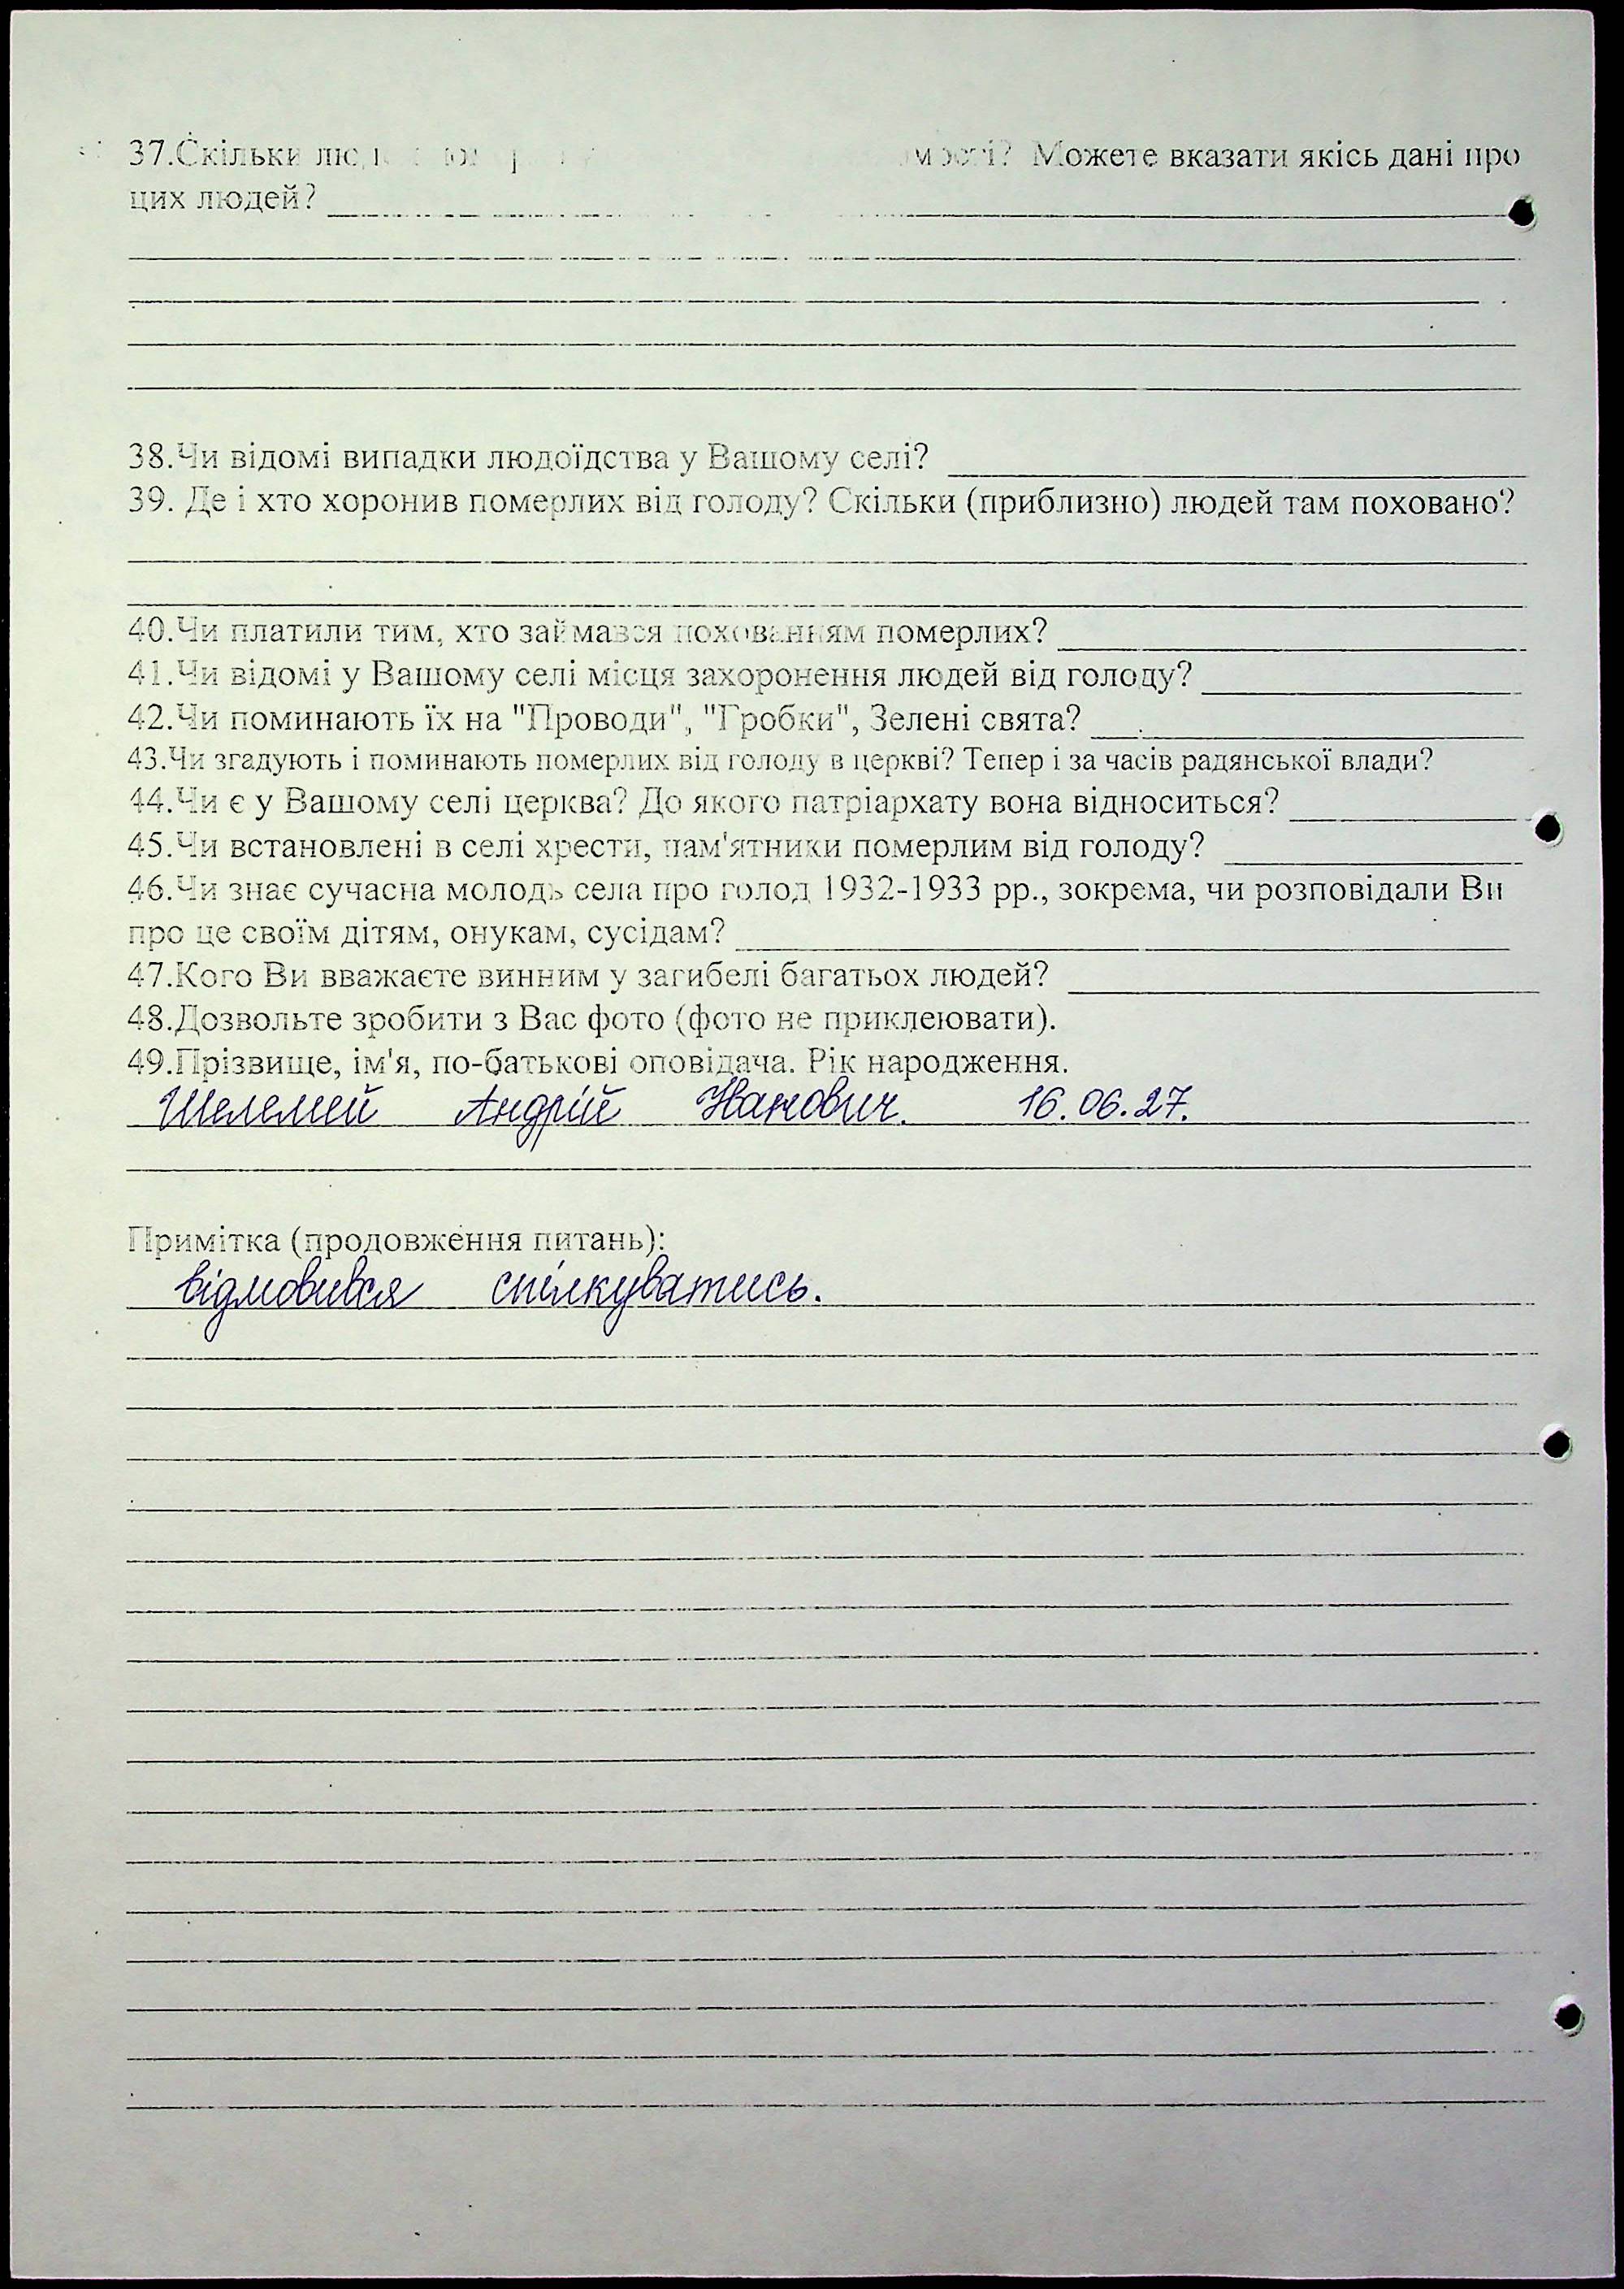 37.Скільки
Можете вказати якісь дані про
цих людей?
38.Чи відомі випадки людоїдства у Вашому селі?
39. Де і хто хоронив померлих від голоду? Скільки (приблизно) людей там поховано?
40.Чи платили тим, хто займався похованням померлих?
41.Чи відомі у Вашому селі місця захоронення людей від голоду?
42.Чи поминають їх на "Проводи", "Гробки", Зелені свята?
43.Чи згадують і поминають померлих від голоду в церкві? Тепер і за часів радянської влади?
44.Чи є у Вашому селі церква? До якого патріархату вона відноситься?
45.Чи встановлені в селі хрести, пам'ятники померлим від голоду?
46.Чи знає сучасна молодь села про голод 1932-1933 рр., зокрема, чи розповідали Ви
про це своїм дітям, онукам, сусідам?
47.Кого Ви вважаєте винним у загибелі багатьох людей?
48.Дозвольте зробити з Вас фото (фото не приклеювати).
49.Прізвище, ім'я, по-батькові оповідача. Рік народження.
Шелемей Андрій Іванович. 16.06.27.
Примітка (продовження питань):
відмовився спілкуватись.